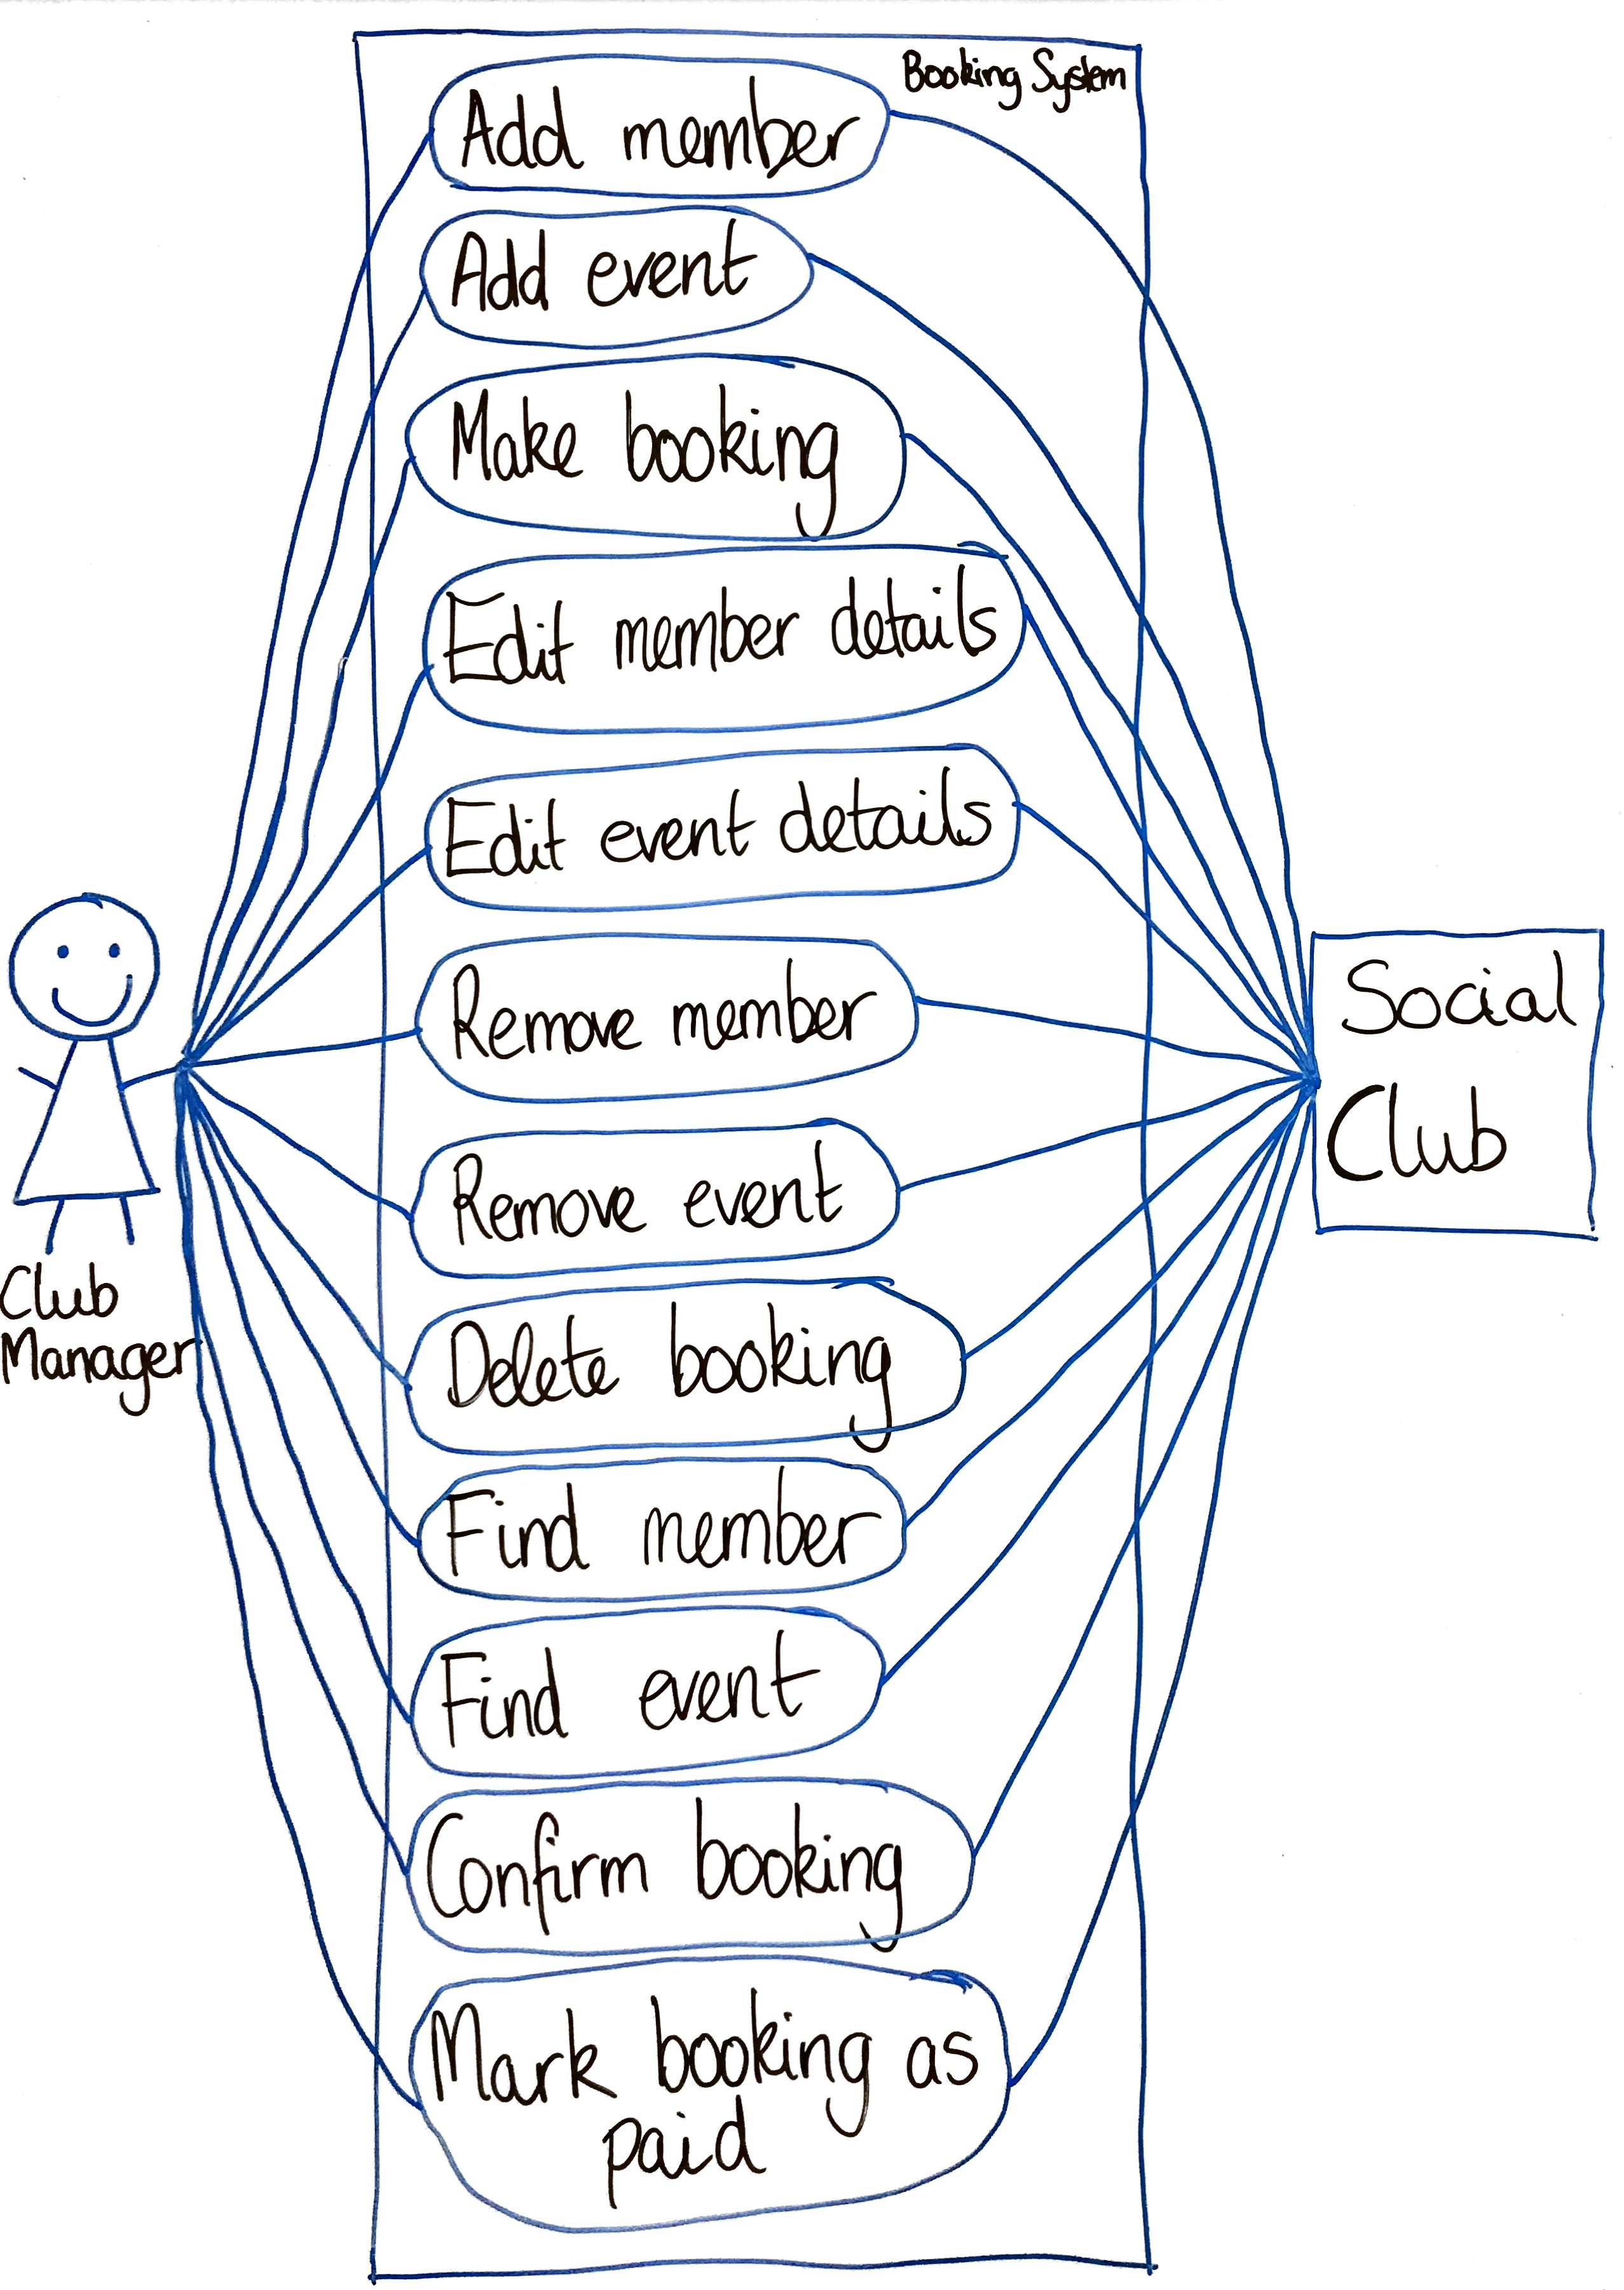 Booking System
Add member
Add event
Make booking
Edit member details
Edit event details
Remove member
Remove event
Delete booking
Find member
Find event
Confirm booking
Mark booking as
paid
Club
Manager
Social
Club